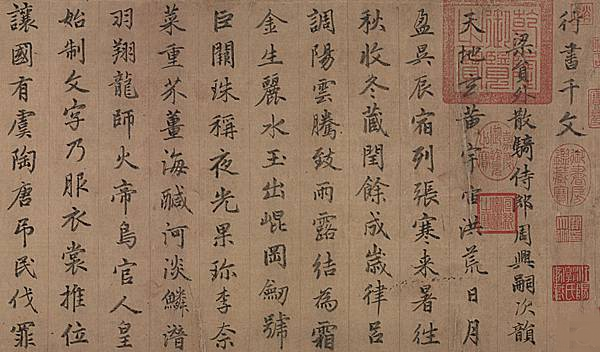 行書千文
梁員外散騎侍郎周興嗣次韻
天地玄黃宇宙洪荒日月
盈昃辰宿列張寒来暑往
秋收冬藏閏餘成歲律呂
調陽雲騰致雨露結為霜
金生麗水玉出崐岡劒號
巨闕珠稱夜光果珍李柰
菜重芥薑海鹹河淡鱗潛
羽翔龍師火帝鳥官人皇
始制文字乃服衣裳推位
讓國有虞陶唐吊民伐罪